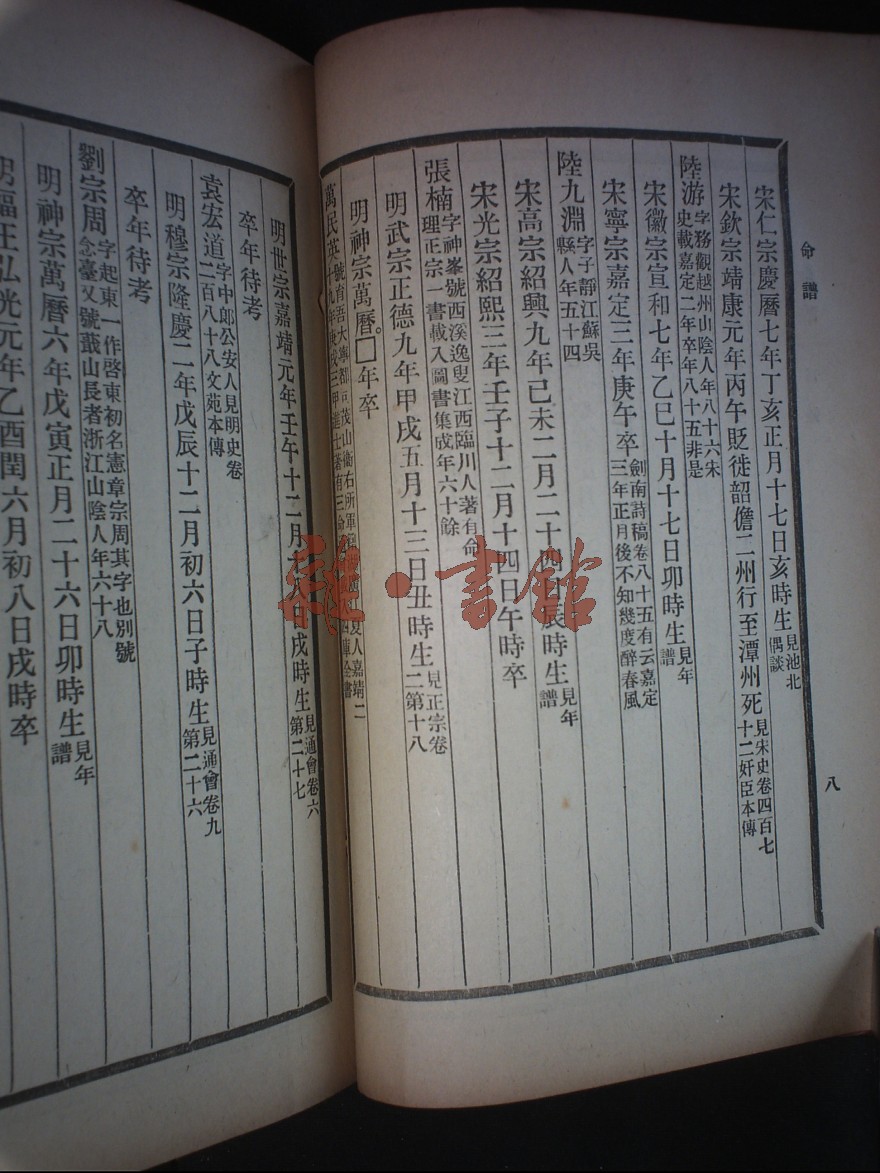 命譜
八
宋仁宗慶曆七年丁亥正月十七日亥時生見池北偶談
宋欽宗靖康元年丙午貶徙韶儋二州行至潭州死見宋史卷四百七十二奸臣本傳
陸游字務觀越州山陰人年八十六宋史載嘉定二年卒年八十五非是
宋徽宗宣和七年乙巳十月十七日卯時生見年譜
宋寧宗嘉定三年庚午卒劍南詩稿卷八十五有云嘉定三年正月後不知幾度醉春風
陸九淵字子靜江蘇吳縣人年五十四
宋高宗紹興九年己未二月二十四日辰時生見年譜
宋光宗紹熙三年壬子十二月十四日午時卒
張楠字神峯號西溪逸叟江西臨川人著有命理正宗一書載入圖書集成年六十餘
明武宗正德九年甲戌五月十三日丑時生見正宗卷二第十八
明神宗萬曆。□年卒
萬民英號育吾大寧都司茂山衞右所軍籍江夏人嘉靖二十九年庚戌三甲進士著有三命四庫全書
明世宗嘉靖元年壬午十二月八日戌時生見通會卷六第二十七
卒年待考
袁宏道字中郎公安人見明史卷二百八十八文苑本傳
明穆宗隆慶二年戊辰十二月初六日子時生見通會卷九第二十六
卒年待考
劉宗周字起東一作啓東初名憲章宗周其字也別號念臺又號蕺山長者浙江山陰人年六十八
明神宗萬曆六年戊寅正月二十六日卯時生見年譜
明福王弘光元年乙酉閏六月初八日戌時卒
雜·書館